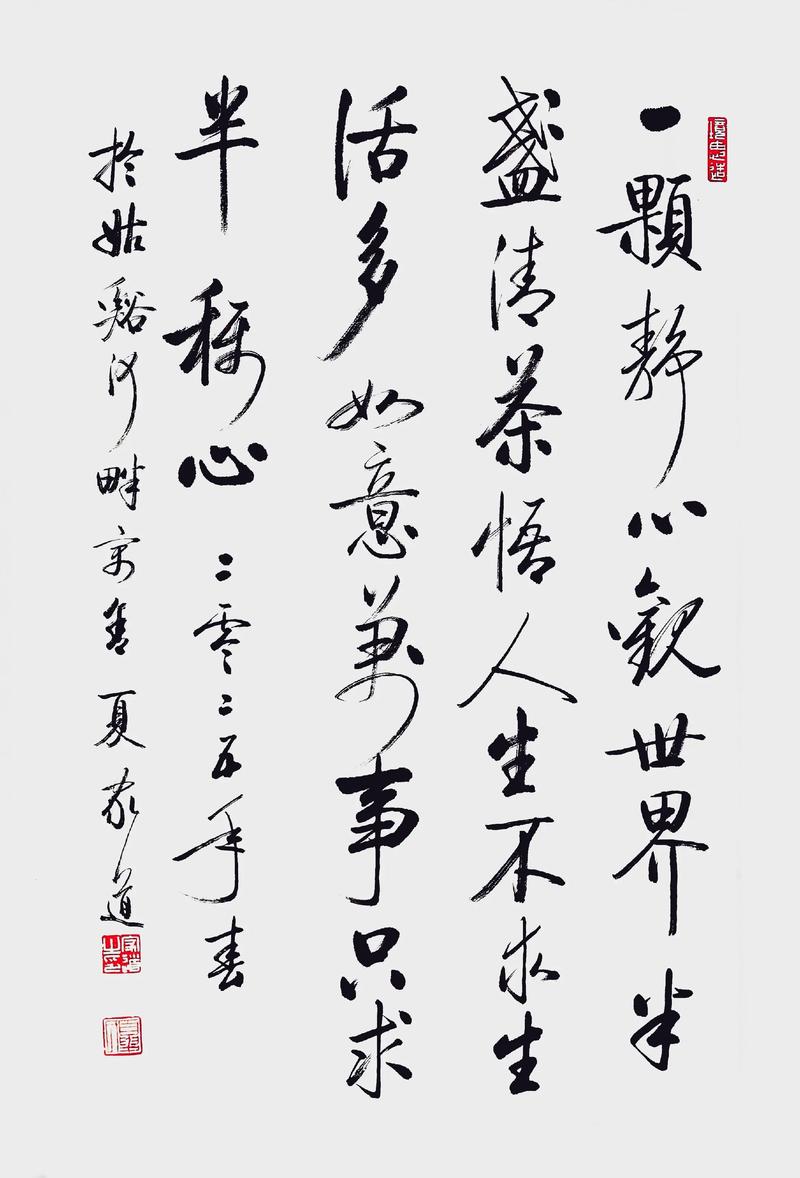 境由心造
一顆靜心觀世界半
盞清茶悟人生不求生
活多如意萬事只求
半稱心 二零二五年春
於姑谿河畔寓舍 夏家道